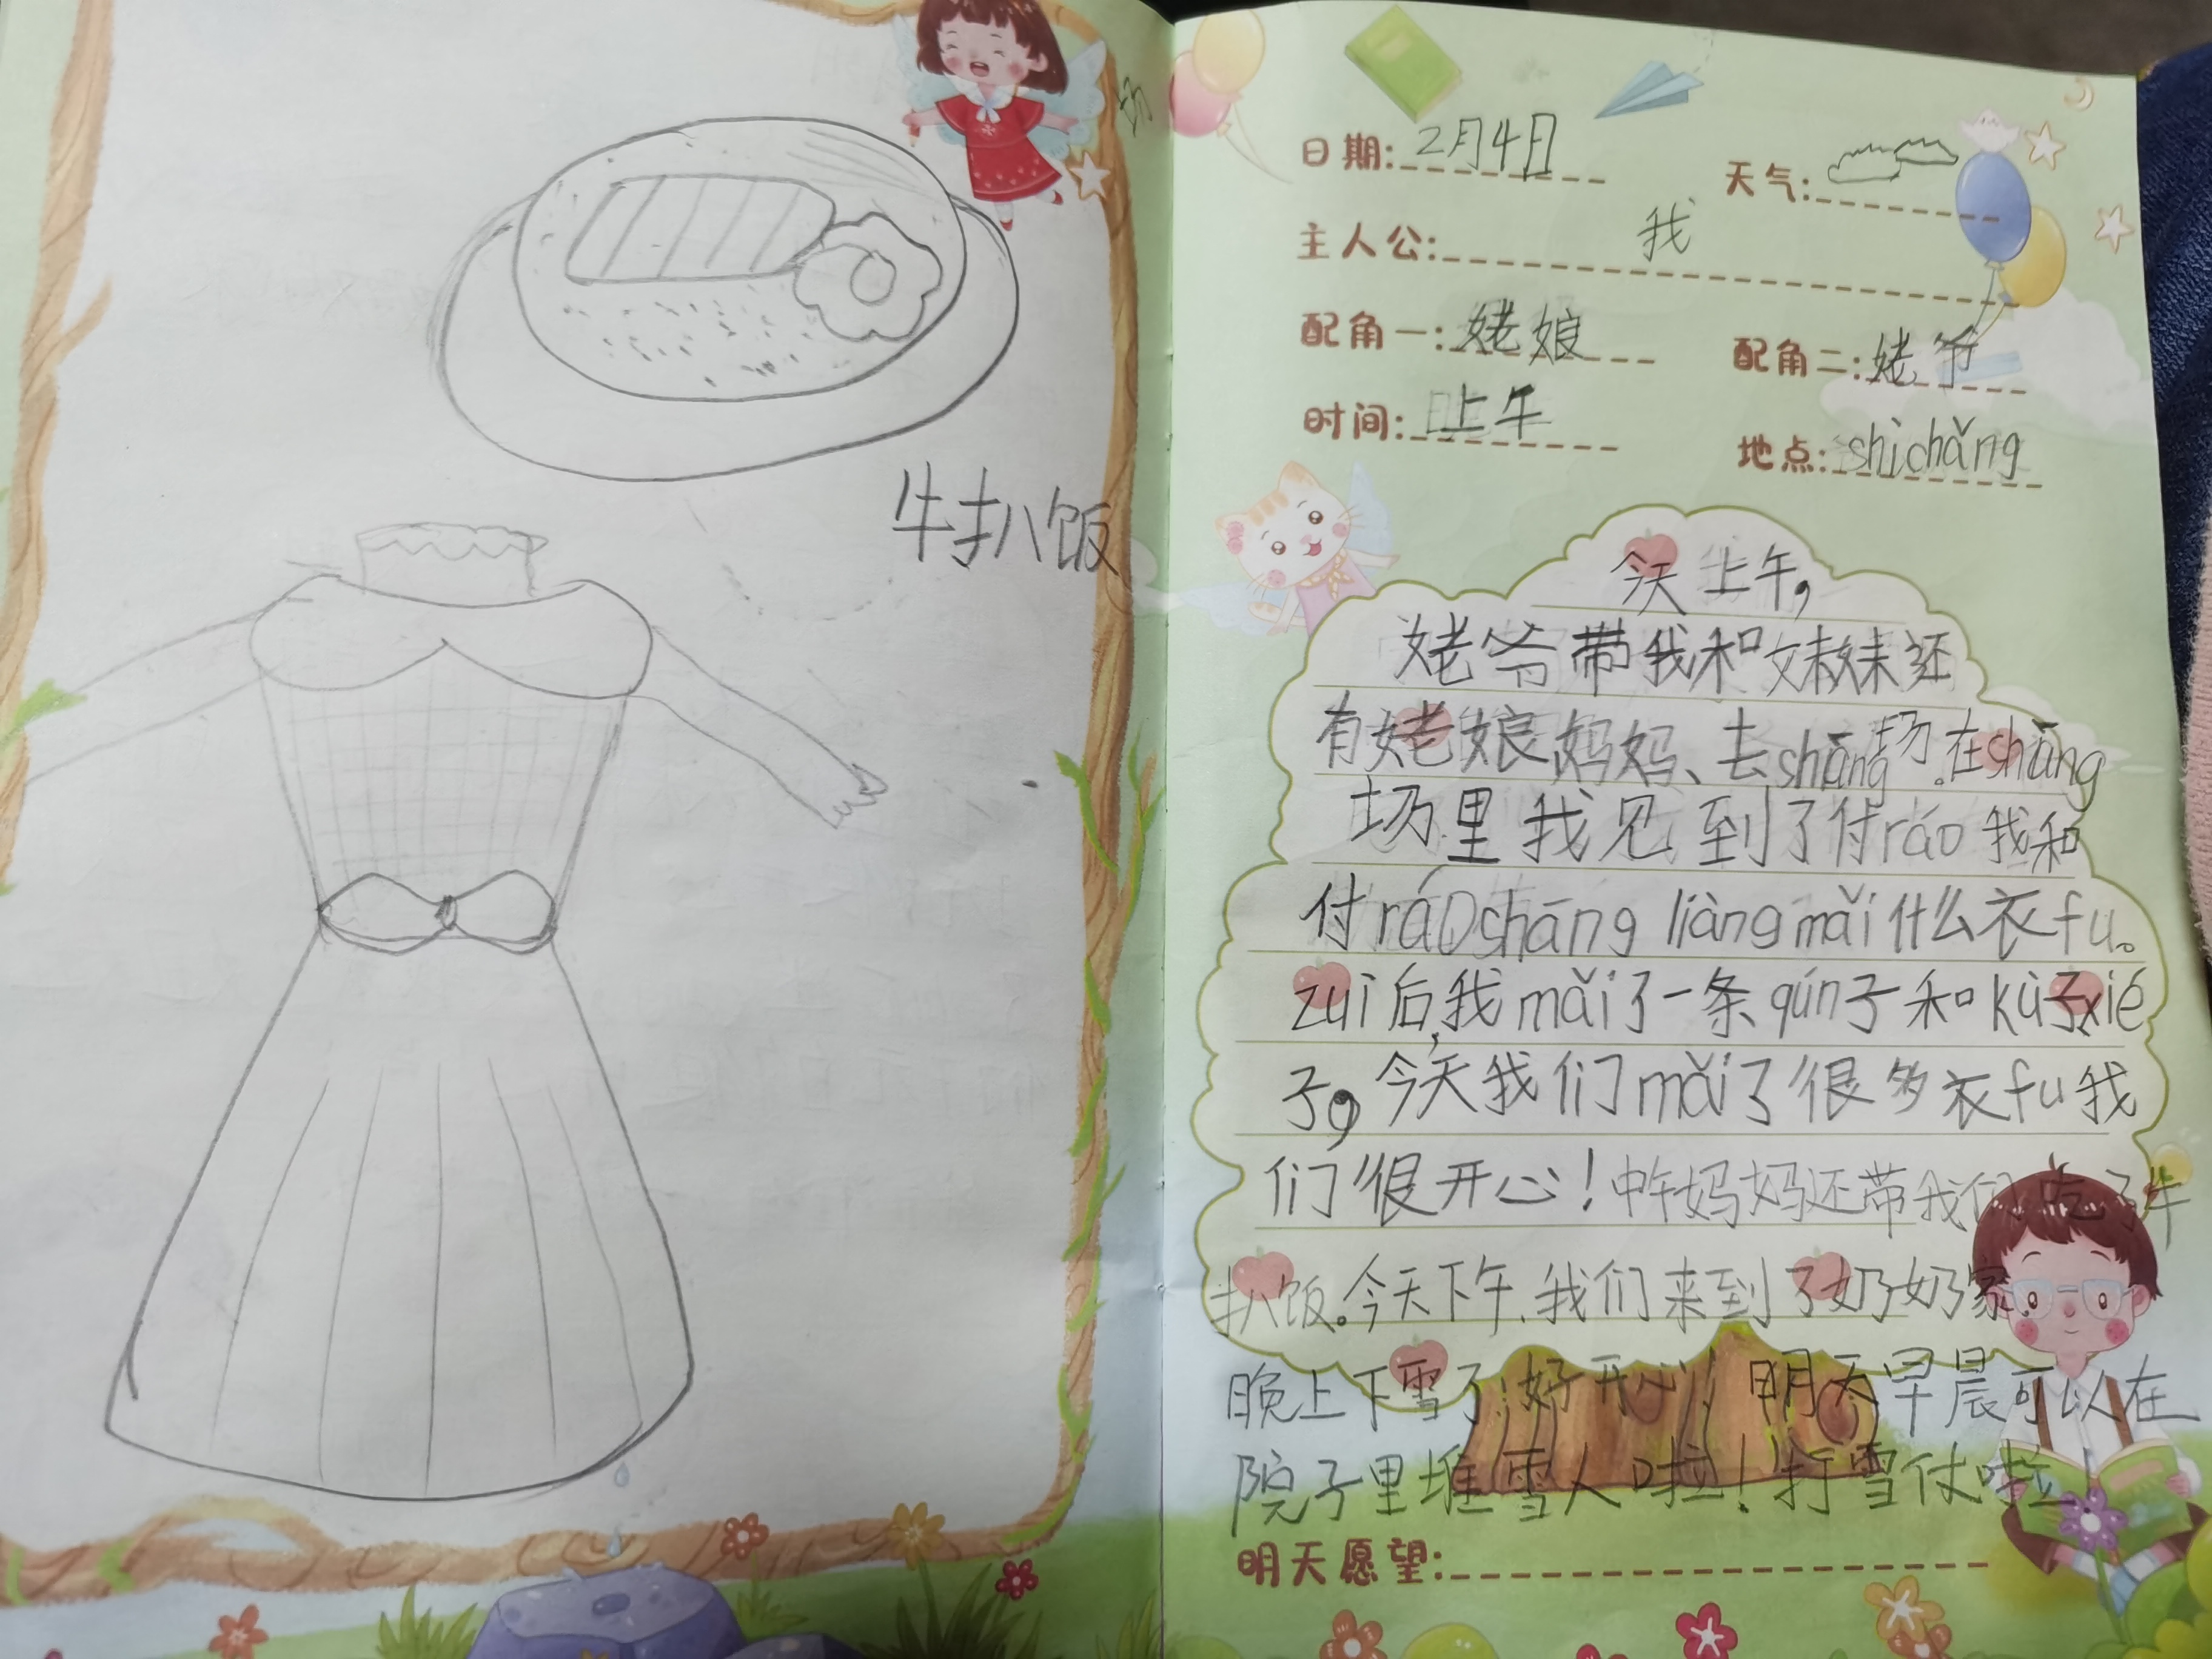 牛扒饭
日期: 2月4日
天气:
主人公: 我
配角一: 姥娘
配角二: 姥爷
时间: 上午
地点: shichǎng
今天上午,
姥爷带我和妹妹还
有姥娘妈妈、去shāng场.在shāng
场里我见到了付ráo我和
付ráoshāng liàngmǎi什么衣fu。
zuì后,我mǎi了一条qún子和kù子xié
子,今天我们mǎi了很多衣fu我
们很开心!中午妈妈还带我们吃了牛
扒饭。今天下午、我们来到了奶奶家.
晚上下雪了!好开心!明天早晨可以在
院子里堆雪人啦!打雪仗啦!
明天愿望: